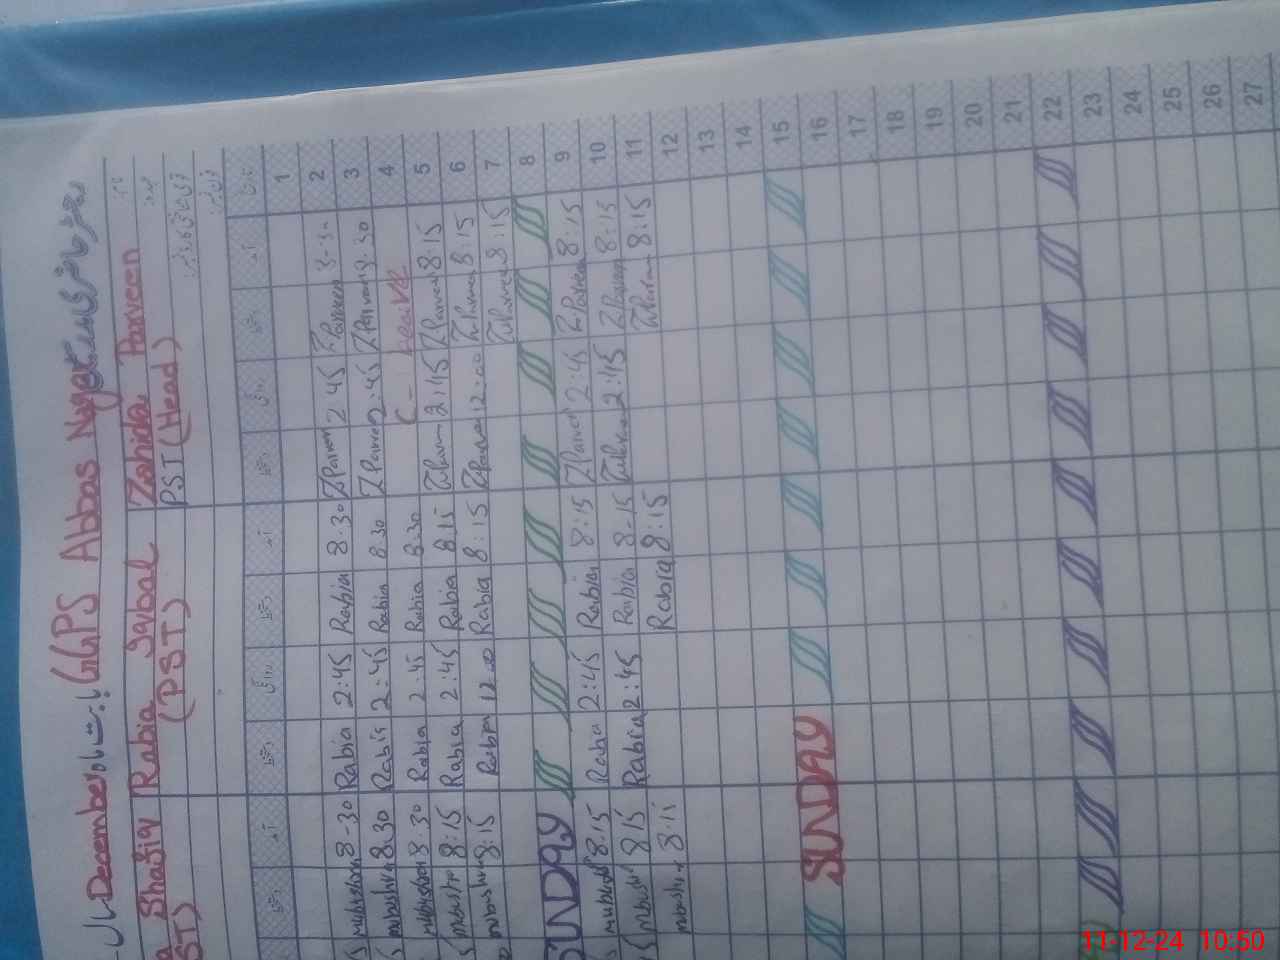 سال December بابت ماہ GGPS Abbas Nagar
Shafiq Rabia Iqbal Zahida Parveen نام
(PST) PST (Head) عہدہ
1
mubushra 8-30 Rabia 2:45 Rabia 8.30 ZParveen 2 45 ZParveen 3-30 2
mubushra 8.30 Rabia 2:45 Rabia 8.30 ZParveen 2:45 ZParveen 3.30 3
mubushra 8.30 Rabia 2:45 Rabia 8.30 C- Leaive 4
mubushra 8:15 Rabia 2:45 Rabia 8:15 ZParveen 2:45 ZParveen 8:15 5
mubushra 8:15 Rabia 12:00 Rabia 8:15 ZParveen 12:00 ZParveen 8:15 6
ZParveen 8:15 7
SUNDAY 8
mubushra 8:15 Rabia 2:45 Rabia 8:15 ZParveen 2:45 ZParveen 8:15 9
mubushra 8:15 Rabia 2:45 Rabia 8-15 ZParveen 2:45 ZParveen 8:15 10
mubushra 8:15 Rabia 8:15 ZParveen 8:15 11
12
13
14
SUNDAY 15
16
17
18
19
20
21
22
23
24
25
26
27
11-12-24 10:50